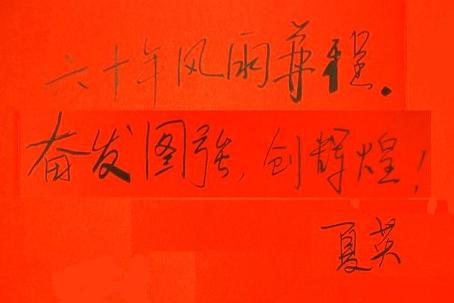 六十年风雨兼程。
奋发图强，创辉煌！
夏英